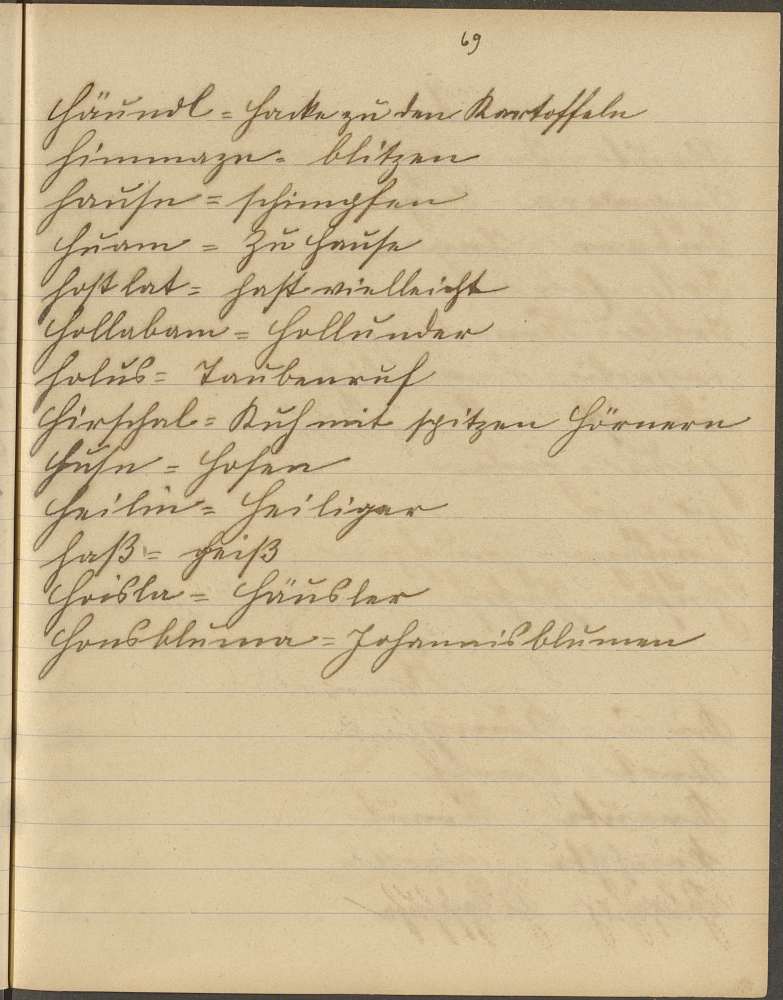 69
Häundl = Hacke zu den Kartoffeln
himmazn = blitzen
hausn = schimpfen
huam = Zu Hause
host lat = hast vielleicht
Hollabam = Hollunder
holus = Taubenruf
Hirschal = Kuh mit spitzen Hörnern
Husn = Hosen
Heilin = Heiliger
haß = heiß
Hoisla = Häusler
Honsbluma = Johannisblumen